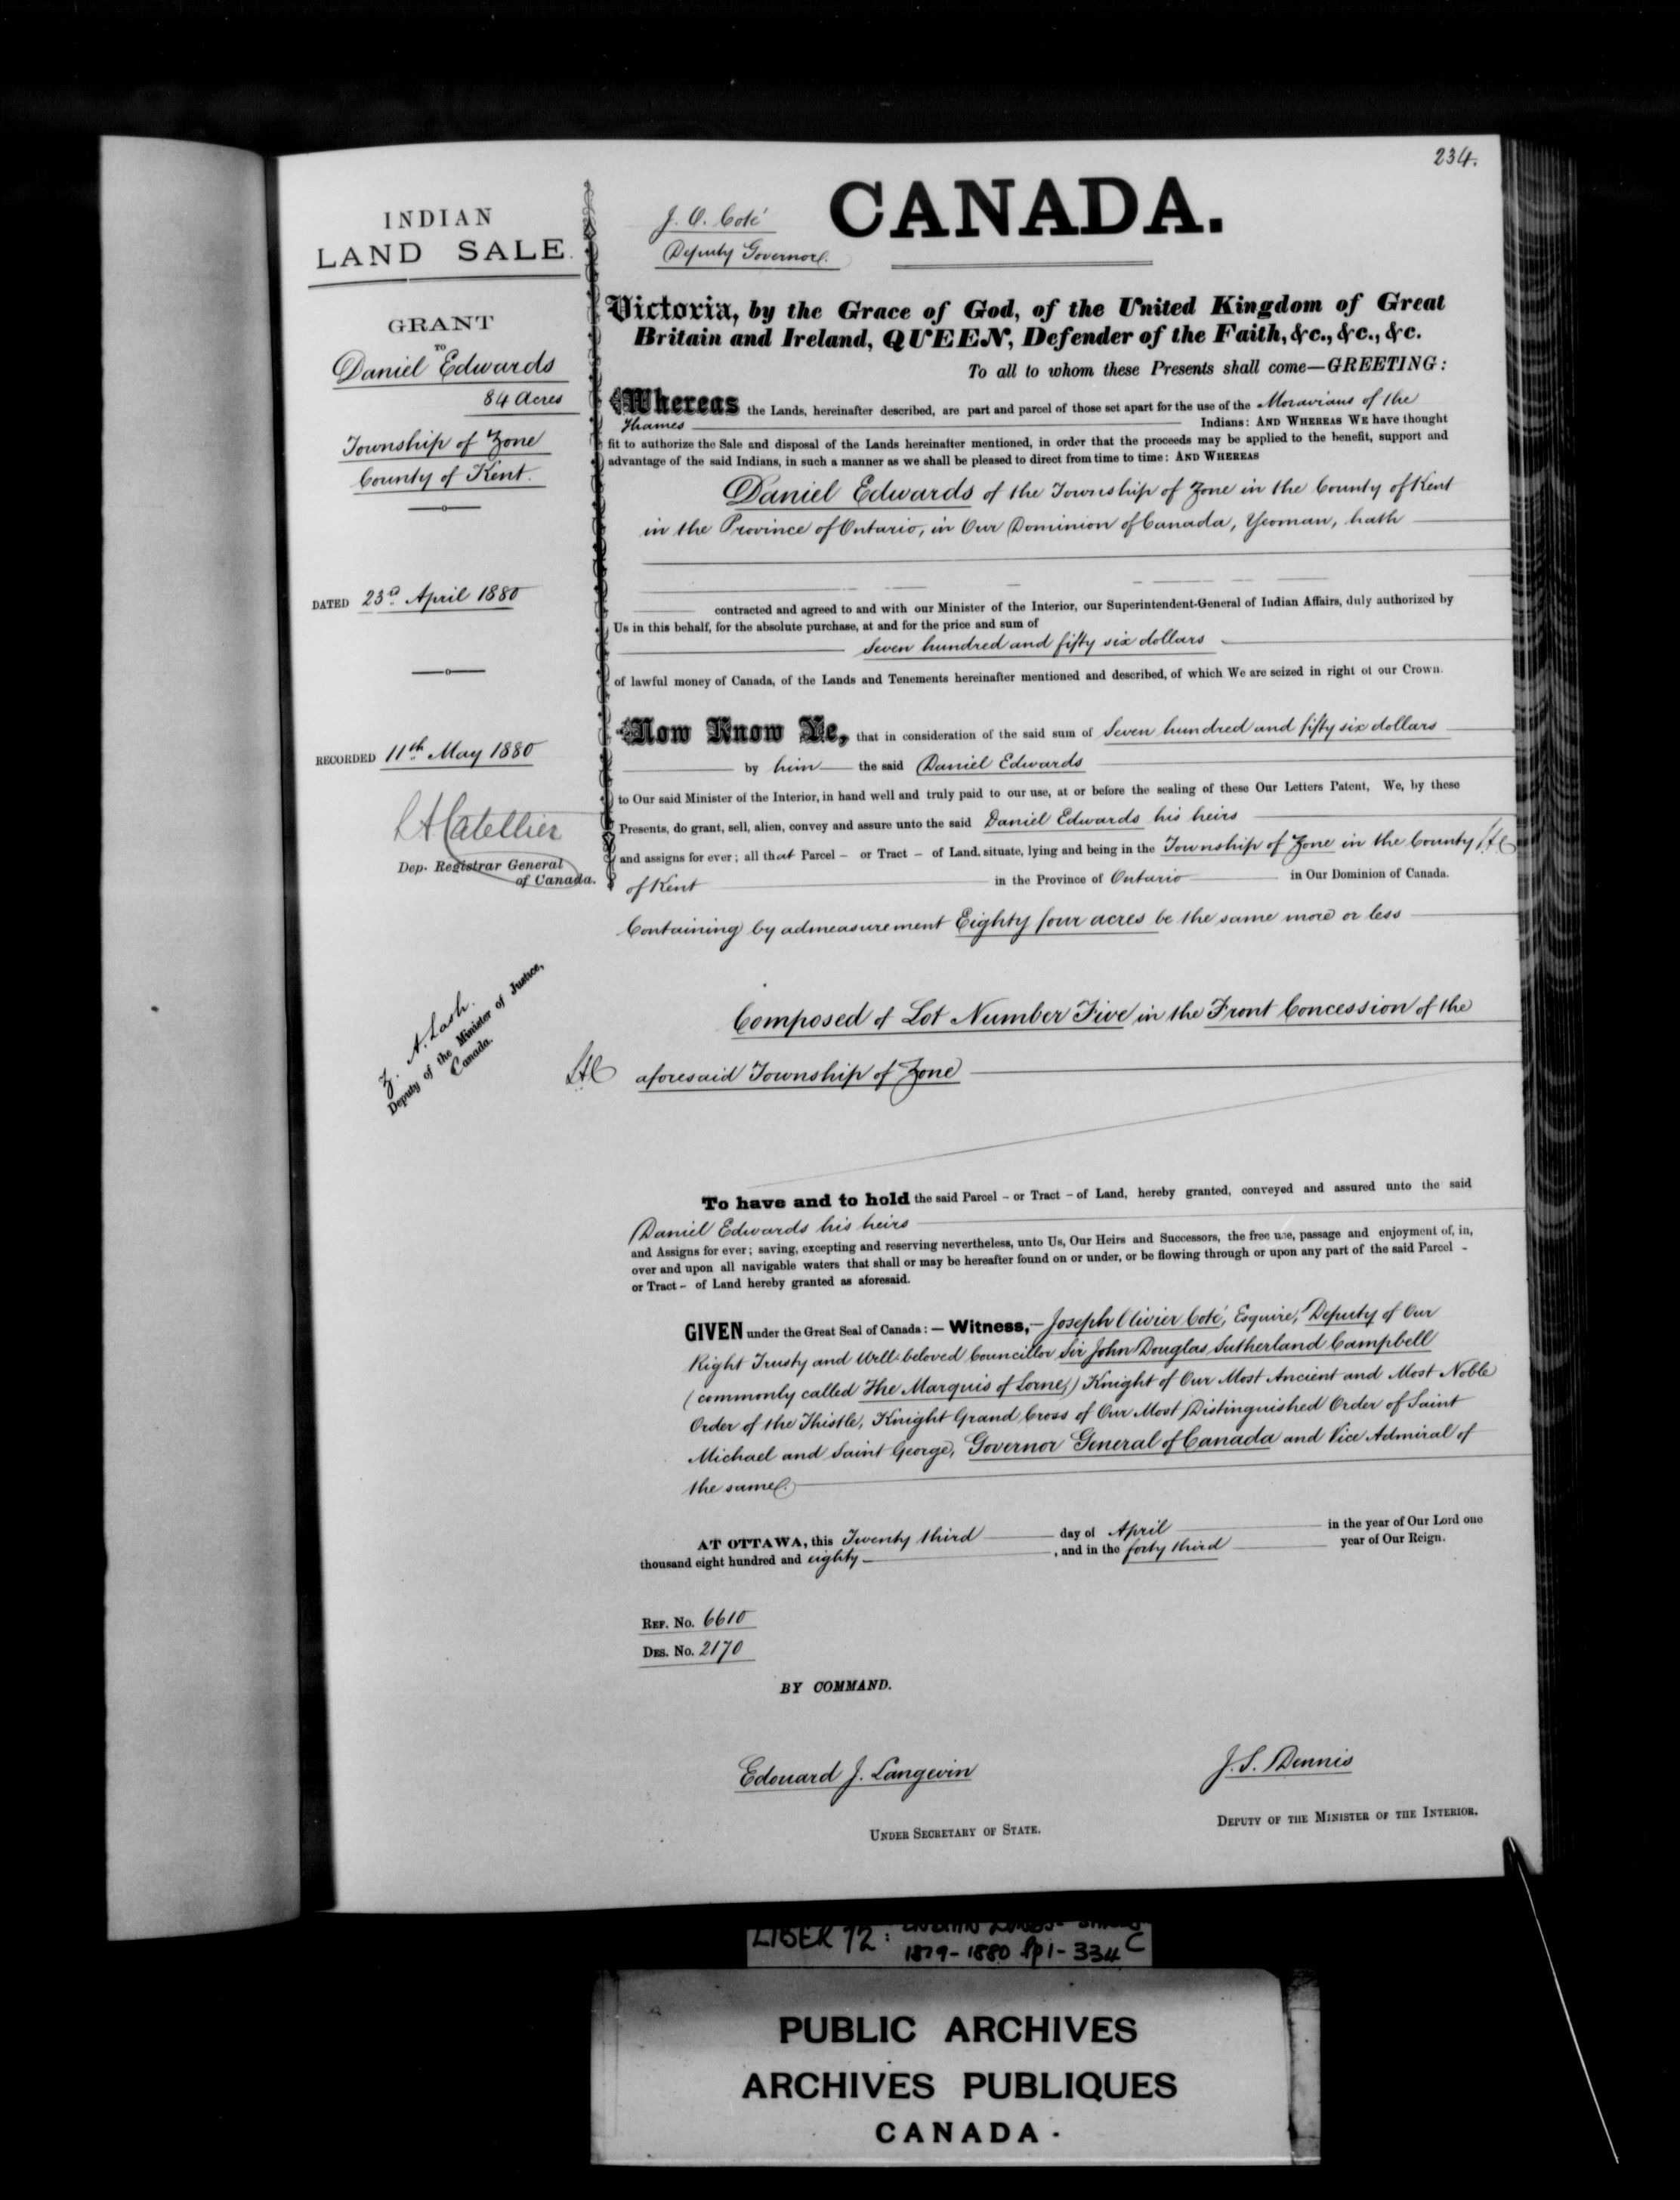 234.
INDIAN
LAND SALE.
GRANT
TO
Daniel Edwards
84 Acres
Township of Zone
County of Kent.
DATED 23rd April 1880
RECORDED 11th May 1880
L A Catellier
Dep. Registrar General
of Canada.
Z. A. Lash.
Deputy of the Minister of Justice,
Canada.
J. O. Coté
Deputy Governor.
CANADA.
Victoria, by the Grace of God, of the United Kingdom of Great
Britain and Ireland, QUEEN, Defender of the Faith, &c., &c., &c.
To all to whom these Presents shall come—GREETING:
Whereas the Lands, hereinafter described, are part and parcel of those set apart for the use of the Moravians of the
Thames Indians: AND WHEREAS WE have thought
fit to authorize the Sale and disposal of the Lands hereinafter mentioned, in order that the proceeds may be applied to the benefit, support and
advantage of the said Indians, in such a manner as we shall be pleased to direct from time to time: AND WHEREAS
Daniel Edwards of the Township of Zone in the County of Kent
in the Province of Ontario, in Our Dominion of Canada, Yeoman, hath
contracted and agreed to and with our Minister of the Interior, our Superintendent-General of Indian Affairs, duly authorized by
Us in this behalf, for the absolute purchase, at and for the price and sum of
Seven hundred and fifty six dollars
of lawful money of Canada, of the Lands and Tenements hereinafter mentioned and described, of which We are seized in right of our Crown.
Now Know Ye, that in consideration of the said sum of Seven hundred and fifty six dollars
by him the said Daniel Edwards
to Our said Minister of the Interior, in hand well and truly paid to our use, at or before the sealing of these Our Letters Patent, We, by these
Presents, do grant, sell, alien, convey and assure unto the said Daniel Edwards his heirs
and assigns for ever; all that Parcel - or Tract - of Land, situate, lying and being in the Township of Zone in the County LAC
of Kent in the Province of Ontario in Our Dominion of Canada.
Containing by admeasurement Eighty four acres be the same more or less
Composed of Lot Number Five in the Front Concession of the
LAC aforesaid Township of Zone
To have and to hold the said Parcel - or Tract - of Land, hereby granted, conveyed and assured unto the said
Daniel Edwards his heirs
and Assigns for ever; saving, excepting and reserving nevertheless, unto Us, Our Heirs and Successors, the free use, passage and enjoyment of, in,
over and upon all navigable waters that shall or may be hereafter found on or under, or be flowing through or upon any part of the said Parcel -
or Tract - of Land hereby granted as aforesaid.
GIVEN under the Great Seal of Canada: — Witness, — Joseph Olivier Coté, Esquire, Deputy of Our
Right Trusty and Well-beloved Councillor Sir John Douglas Sutherland Campbell
(commonly called The Marquis of Lorne,) Knight of Our Most Ancient and Most Noble
Order of the Thistle, Knight Grand Cross of Our Most Distinguished Order of Saint
Michael and Saint George, Governor General of Canada and Vice Admiral of
the same.
AT OTTAWA, this Twenty third day of April in the year of Our Lord one
thousand eight hundred and eighty , and in the forty third year of Our Reign.
REF. No. 6610
DES. No. 2170
BY COMMAND.
Edouard J. Langevin
UNDER SECRETARY OF STATE.
J. S. Dennis
DEPUTY OF THE MINISTER OF THE INTERIOR.
LIBER 72:
1879-1880 pp 1-334 C
PUBLIC ARCHIVES
ARCHIVES PUBLIQUES
CANADA.